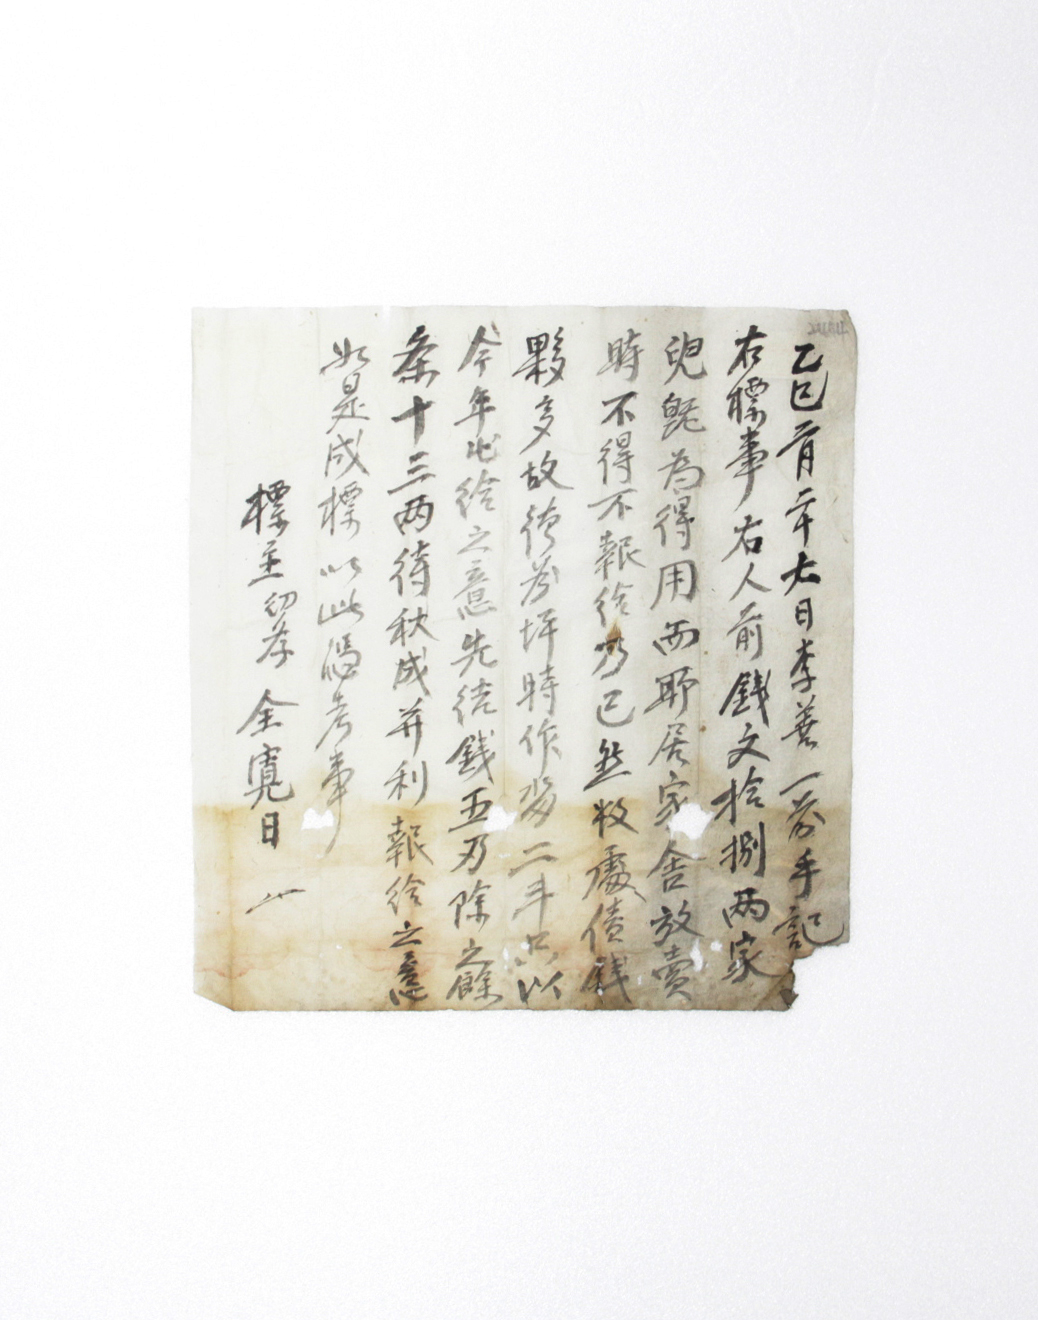 乙巳二月二十六日李善一前手記
右標事右人前錢文拾捌两家
兒既為得用而耶居家舍放賣
時不得不報給乃已然收處債錢
夥多故前坪時作畓二斗只以
今年花給之意先結錢五刄除之餘
条十三两待秋成并利報給之意
如是成標以此憑考事
標主幼學全寬日